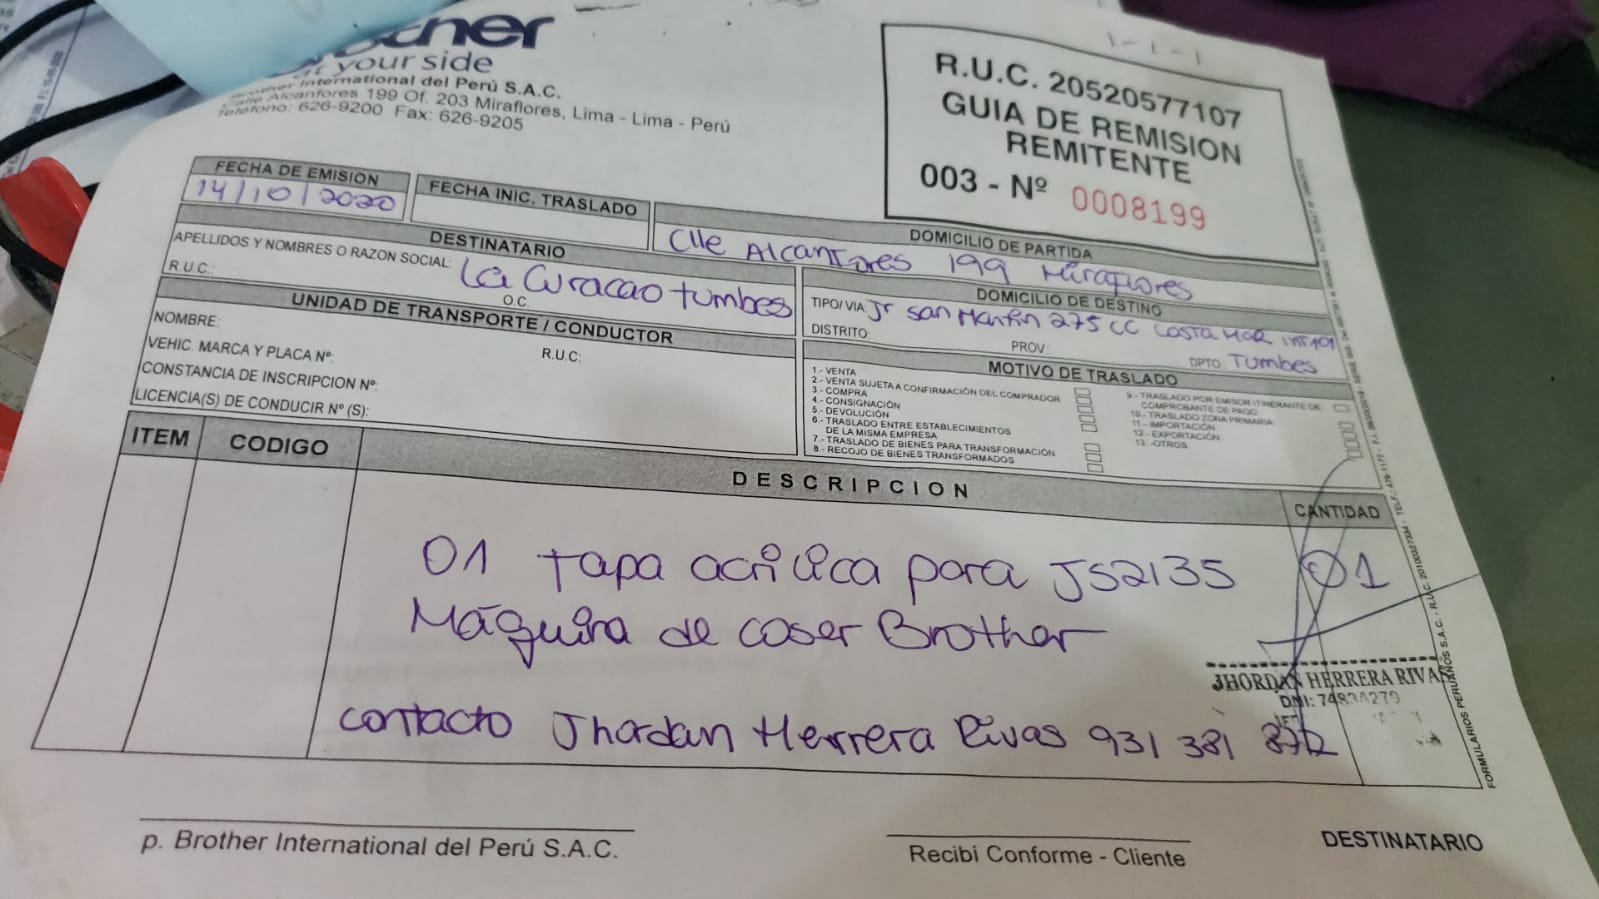 other
at your side
Brother International del Perú S.A.C.
Calle Alcanfores 199 Of. 203 Miraflores, Lima - Lima - Perú
Teléfono: 626-9200 Fax: 626-9205
R.U.C. 20520577107
GUIA DE REMISION
REMITENTE
003 - Nº 0008199
FECHA DE EMISION
14/10/2020
FECHA INIC. TRASLADO
DOMICILIO DE PARTIDA
Clle Alcanfores 199 Miraflores
DESTINATARIO
APELLIDOS Y NOMBRES O RAZON SOCIAL: La Curacao tumbes
R.U.C.:
O.C.
DOMICILIO DE DESTINO
TIPO/VIA: Jr San Martin 275 CC Costa Mar Int 101
DISTRITO: PROV: DPTO Tumbes
UNIDAD DE TRANSPORTE / CONDUCTOR
NOMBRE:
VEHIC. MARCA Y PLACA Nº: R.U.C:
CONSTANCIA DE INSCRIPCION Nº:
LICENCIA(S) DE CONDUCIR Nº (S):
MOTIVO DE TRASLADO
1.- VENTA
2.- VENTA SUJETA A CONFIRMACIÓN DEL COMPRADOR
3.- COMPRA
4.- CONSIGNACIÓN
5.- DEVOLUCIÓN
6.- TRASLADO ENTRE ESTABLECIMIENTOS
DE LA MISMA EMPRESA
7.- TRASLADO DE BIENES PARA TRANSFORMACIÓN
8.- RECOJO DE BIENES TRANSFORMADOS
9.- TRASLADO POR EMISOR ITINERANTE DE
COMPROBANTE DE PAGO
10.- TRASLADO ZONA PRIMARIA
11.- IMPORTACIÓN
12.- EXPORTACIÓN
13.-OTROS
ITEM CODIGO DESCRIPCION CANTIDAD
01 tapa acrilica para JS2135 01
Máquina de coser Brother
JHORDAN HERRERA RIVAS
DNI: 74834279
contacto Jhordan Herrera Rivas 931 381 872
p. Brother International del Perú S.A.C.
Recibí Conforme - Cliente
DESTINATARIO
FORMULARIOS PERUANOS S.A.C. - R.U.C.